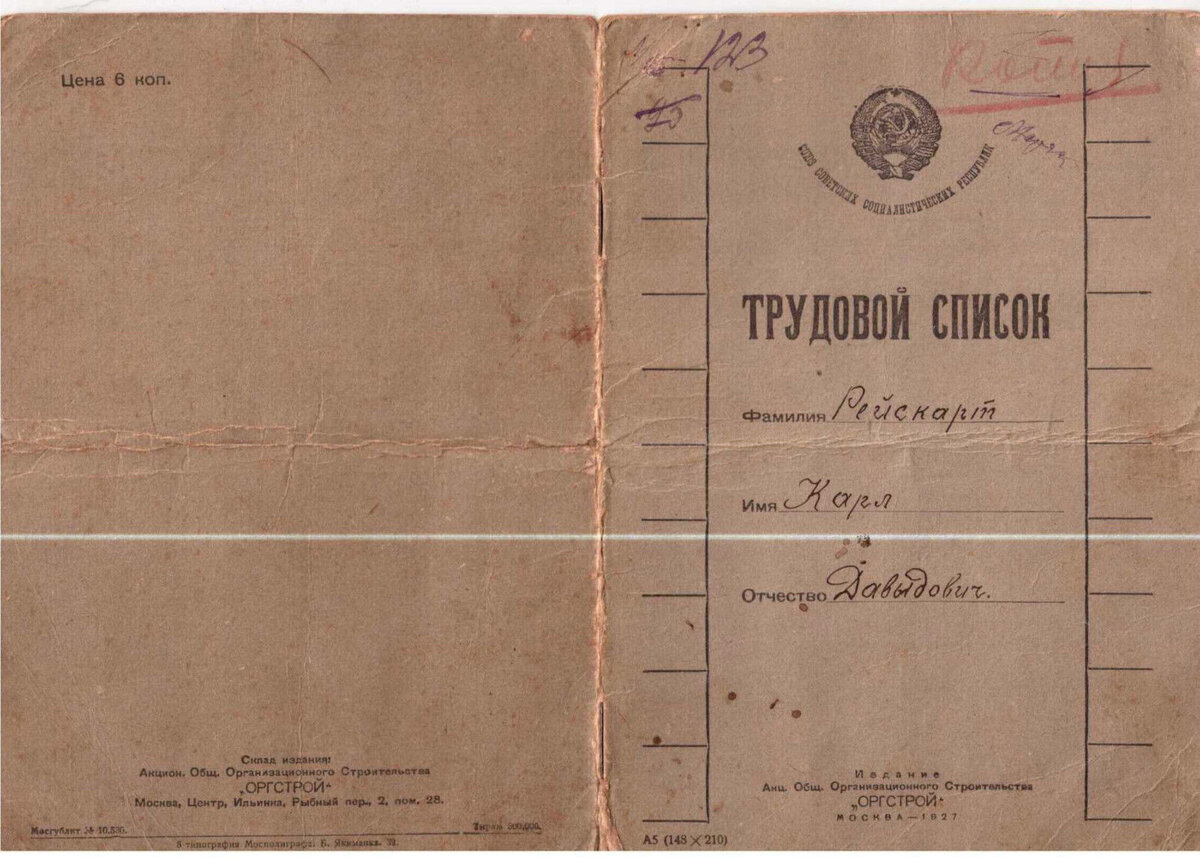 Цена 6 коп.
Склад издания:
Акцион. Общ. Организационного Строительства
„ОРГСТРОЙ“
Москва, Центр, Ильинка, Рыбный пер., 2, пом. 28.
Мосгублит № 10.530.
Тираж 300,000.
5 типография Мосполиграф. Б. Якиманка.
123
СОЮЗ СОВЕТСКИХ СОЦИАЛИСТИЧЕСКИХ РЕСПУБЛИК
ТРУДОВОЙ СПИСОК
Фамилия Рейскарт
Имя Карл
Отчество Давыдович.
Издание
Акц. Общ. Организационного Строительства
„ОРГСТРОЙ“
МОСКВА—1927
А5 (148 × 210)